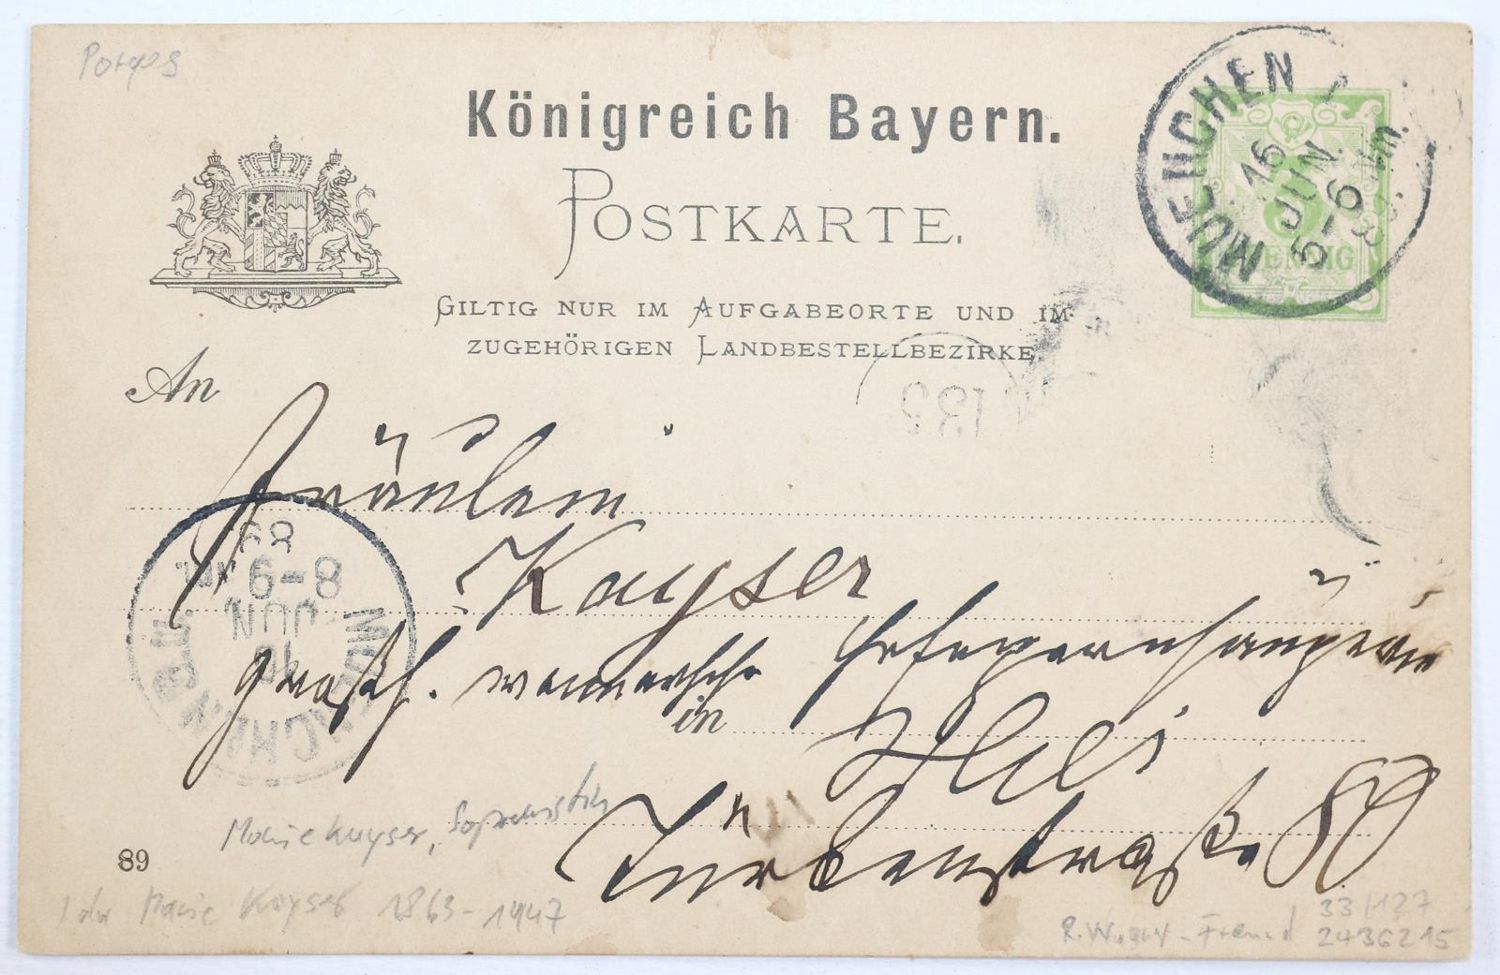 Porges
Königreich Bayern.
POSTKARTE.
GILTIG NUR IM AUFGABEORTE UND IM
ZUGEHÖRIGEN LANDBESTELLBEZIRKE.
MUENCHEN
16
JUN.
5-6 Nm.
PFENNIG
135
An
Fräulein
Kayser
großh. weimarsche Hofopernsängerin
in
Türkenstraße 80
89
8-9
JUN
MUENCHEN
Marie Kayser, Sopranistin
89
Ida Marie Kayser 1863-1947
33/127
R. Freund 2436215